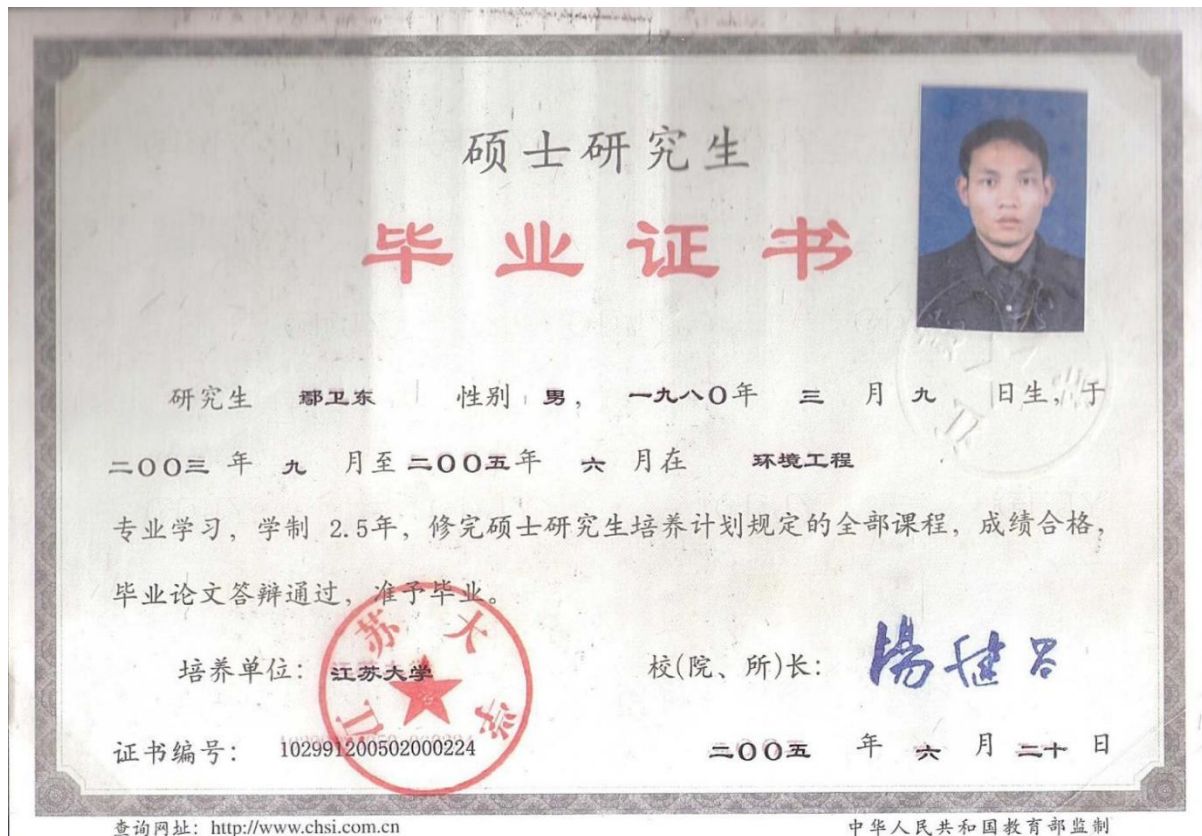 硕士研究生
毕业证书
研究生 鄢卫东 性别 男, 一九八〇年 三 月 九 日生, 于
二〇〇三 年 九 月至 二〇〇五年 六 月在 环境工程
专业学习, 学制 2.5年, 修完硕士研究生培养计划规定的全部课程, 成绩合格,
毕业论文答辩通过, 准予毕业。
江苏大学
培养单位: 江苏大学 校(院、所)长:
证书编号: 102991200502000224 二〇〇五 年 六 月 二十 日
查询网址: http://www.chsi.com.cn 中华人民共和国教育部监制